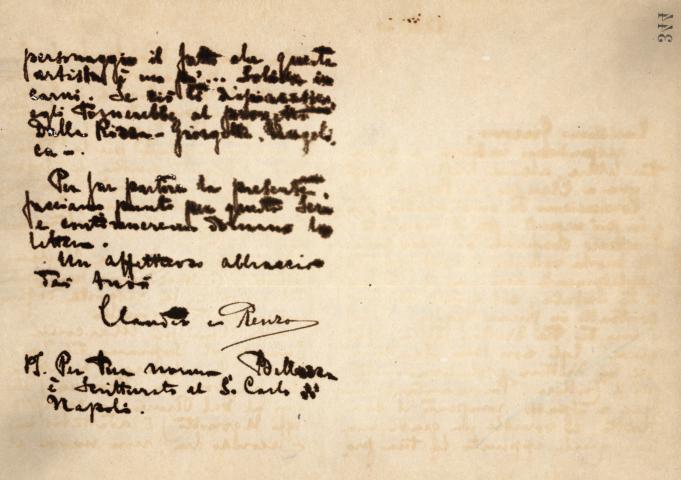 344
personaggio il fatto che questa
artista è un po'... Solida in
carni. Se ciò ti dispiacesse,
egli tornerebbe al progetto
Dalla Rizza - Giorgetta. Angeli,
ca -.
Per far partire la presente
facciamo punto per questa sera
e continueremo domani la
lettera.
Un affettuoso abbraccio
Claudio e Renzo
PS. Per tua norma, Bellezza
è scritturato al S. Carlo di
Napoli.